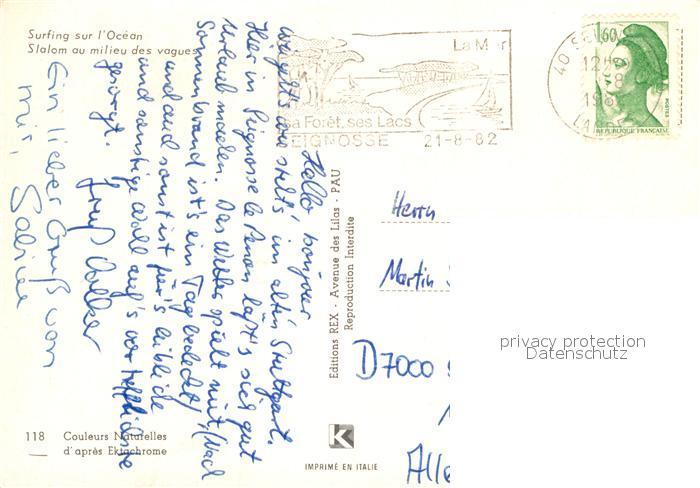 Surfing sur l'Océan
Slalom au milieu des vagues
La Mer
sa Forêt, ses Lacs
SEIGNOSSE 21-8-82
40 SE
12H
8
LANDE
1,60
POSTES
REPUBLIQUE FRANÇAISE
Hallo, bonjour
wie geht's wie steht's im alten Stuttgart.
Hier in Seignosse le Penon läßt's sich gut
Urlaub machen. Das Wetter spielt mit, (Nach
Sonnenbrand ist's ein Tag bedeckt)
und auch sonst ist für's leibliche
und sonstige Wohl auf's vortrefflichste
gesorgt. Gruß Volker
Ein lieber Gruß von
mir, Sabine
Editions REX - Avenue des Lilas - PAU
Reproduction Interdite
Herrn
Martin
D7000
Alle
privacy protection
Datenschutz
118 Couleurs Naturelles
d'après Ektachrome
K
IMPRIMÉ EN ITALIE